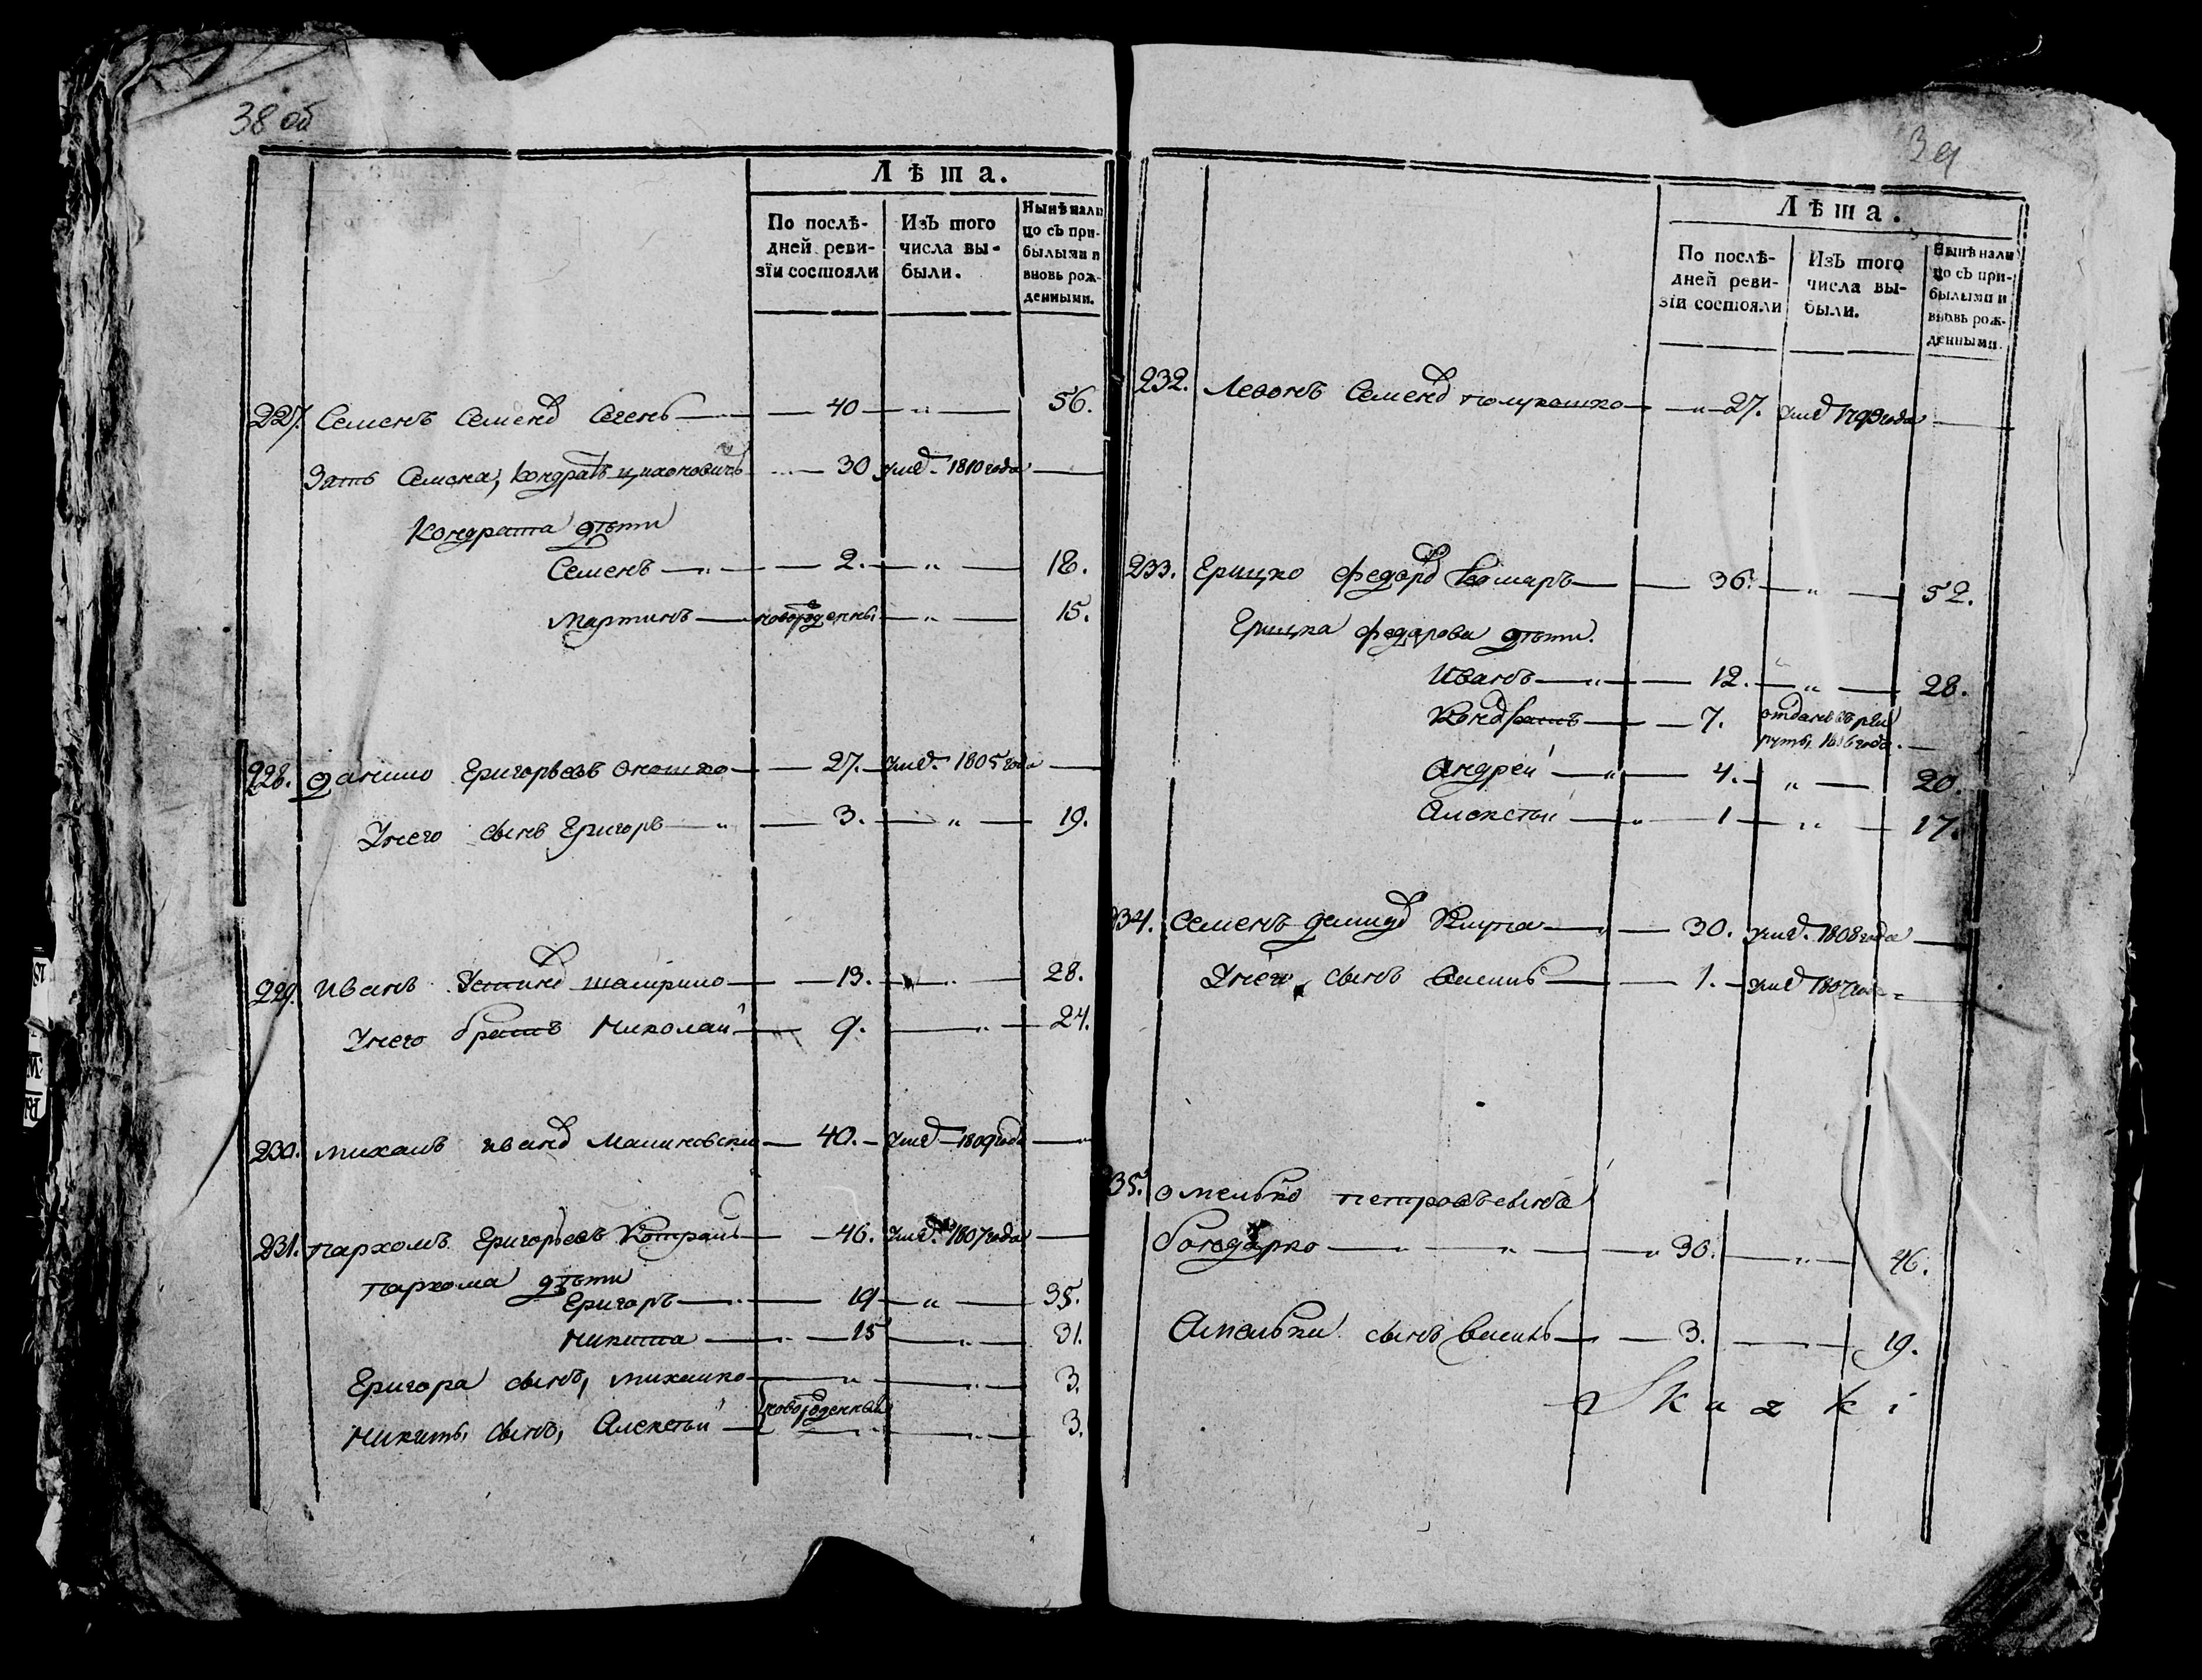 38 об
Лѣта.
По послѣ-
дней реви-
зїи состояли
Изъ того
числа вы-
были.
Нынѣ нали
цо съ при-
былыми и
вновь рож-
денными.
227. Семенъ Семенов 40 " 56.
Зять Семена, Кондратъ 30 умер. 1810 года
Кондрата дѣти
Семенъ " 2. " 18.
Мартинъ новорожденны " 15.
228. Данило Григорьевъ 27. умер. 1805 года
У него сынъ Григоръ " 3. " 19.
229. Иванъ Устинов 13. " 28.
У него братъ Николай 9. " 24.
230. Михаилъ Иванов Малиновски 40. умер 1809 года
231. Пархомъ Григорьевъ 46. умер. 1807 года
Пархома дѣти
Григоръ 19 " 35.
Никита " 15 " 31.
Григора сынъ, Михалко " " 3.
Никиты сынъ, Алексѣй новорожденный " 3.
39
Лѣта.
По послѣ-
дней реви-
зїи состояли
Изъ того
числа вы-
были.
Нынѣ нали
цо съ при-
былыми и
вновь рож-
денными.
232. Левонъ Семенов Полукошко " 27. умер 179 года
233. Грицко Федоров Комаръ 36. " 52.
Грицка Федорова дѣти.
Иванъ " 12. " 28.
Кондратъ 7. отданъ въ рек
руты 1816 года.
Андрей " 4. " 20.
Алексѣй " 1 " 17.
234. Семенъ Демидов 30. умер. 1808 года
У него сынъ 1. умер 1807 года
235. Омелько Петровъ сынъ
Бондарко " " " 30. " 46.
Омельки сынъ 3. " 19.
Skazki